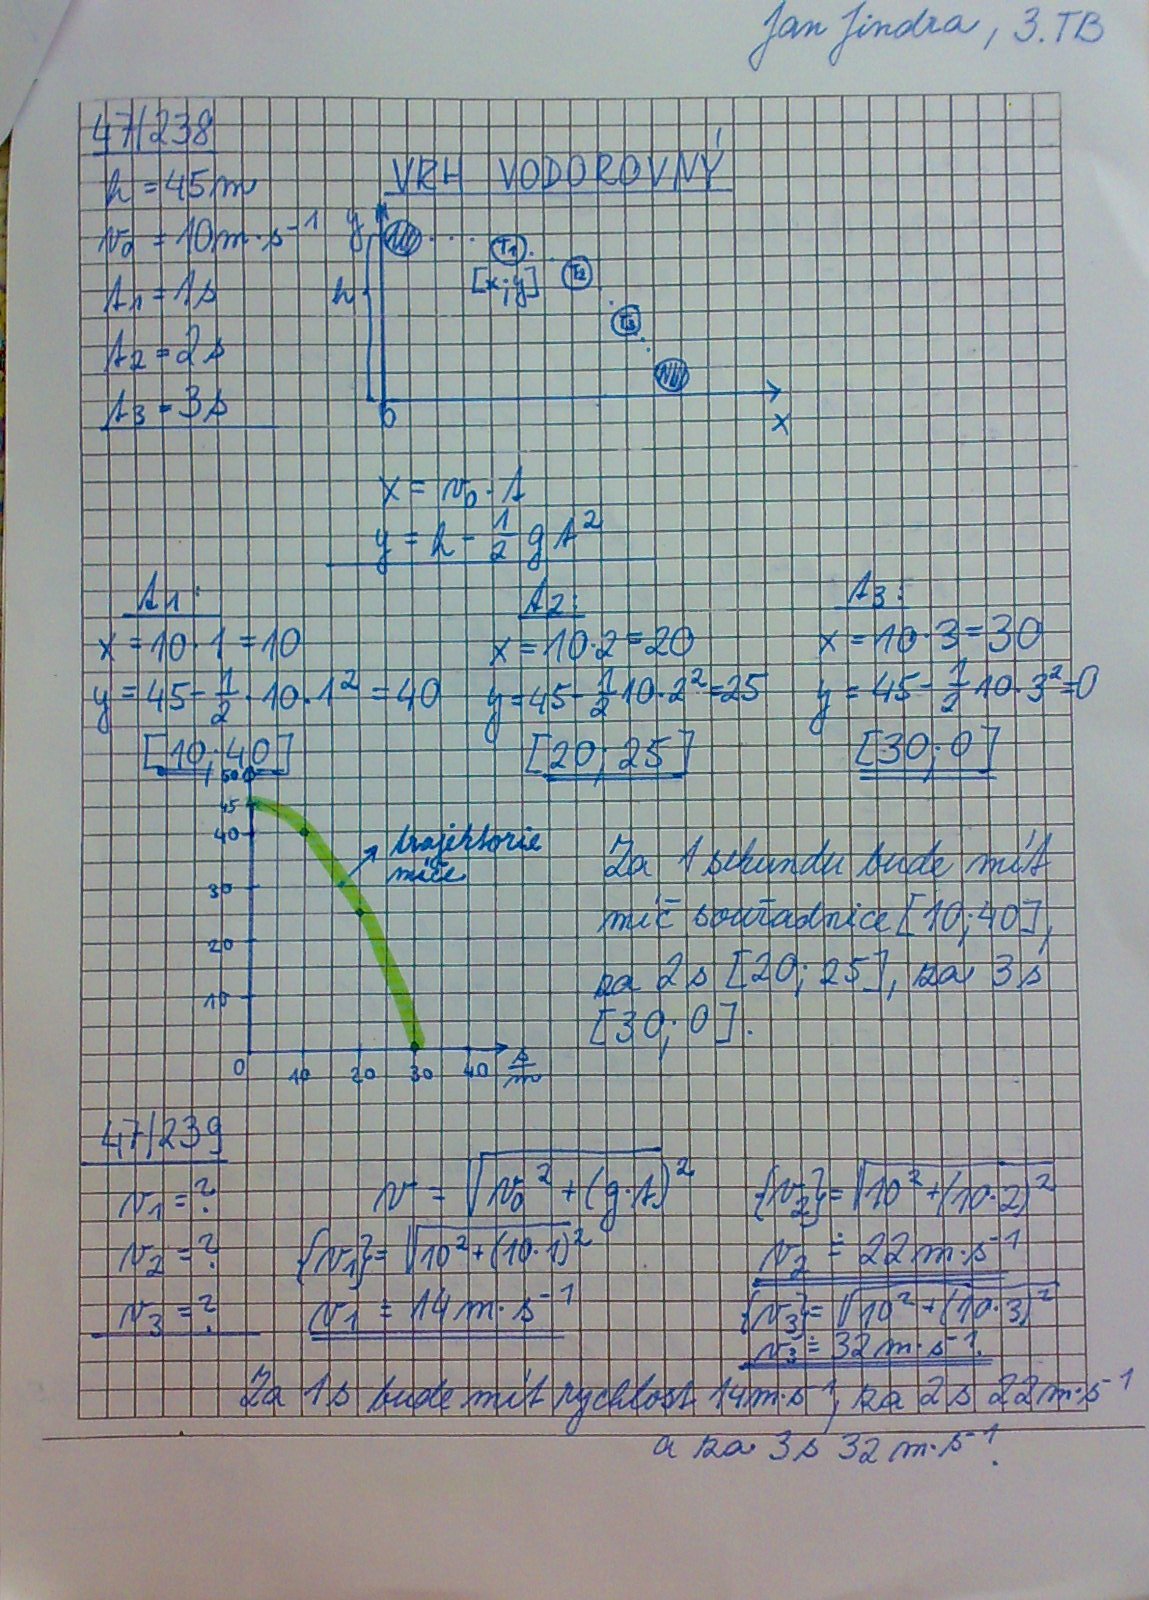 Jan Jindra, 3.TB
47/238
h = 45 m
VRH VODOROVNÝ
v₀ = 10 m·s⁻¹
t₁ = 1 s
t₂ = 2 s
t₃ = 3 s
y
h
T₁
[x;y]
T₂
T₃
0
x
x = v₀ · t
y = h - 1/2 g t²
t₁:
x = 10 · 1 = 10
y = 45 - 1/2 · 10 · 1² = 40
[10; 40]
t₂:
x = 10 · 2 = 20
y = 45 - 1/2 10 · 2² = 25
[20; 25]
t₃:
x = 10 · 3 = 30
y = 45 - 1/2 10 · 3² = 0
[30; 0]
50
45
40
30
20
10
0 10 20 30 40 s/m
trajektorie
míče
Za 1 sekundu bude mít
míč souřadnice [10; 40],
za 2 s [20; 25], za 3 s
[30; 0].
47/239
v₁ = ?
v₂ = ?
v₃ = ?
v = √v₀² + (g·t)²
{v₁} = √10² + (10·1)²
v₁ ≐ 14 m·s⁻¹
{v₂} = √10² + (10·2)²
v₂ ≐ 22 m·s⁻¹
{v₃} = √10² + (10·3)²
v₃ ≐ 32 m·s⁻¹.
Za 1 s bude mít rychlost 14 m·s⁻¹, za 2 s 22 m·s⁻¹
a za 3 s 32 m·s⁻¹.